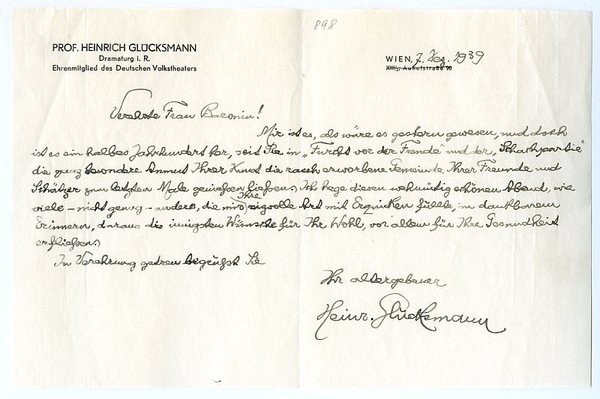 898
PROF. HEINRICH GLÜCKSMANN
Dramaturg i. R.
Ehrenmitglied des Deutschen Volkstheaters
WIEN, 7. Dez. 1939
Verehrte Frau Baronin!
Mir ist es, als wäre es gestern gewesen, und doch
ist es ein halbes Jahrhundert her, seit Sie in „Furcht vor der Freude" und der „Schachpartie"
die ganz besondere Anmut Ihrer Kunst die rasch erworbene Gemeinde Ihrer Freunde und
Schätzer zum letzten Male genießen ließen. Ich hege diesen wehmütig schönen Abend, wie
viele – nicht genug – andere, die mir Ihre Art mit Erquicken füllte, in dankbarem
Erinnern, daraus die innigsten Wünsche für Ihr Wohl, vor allem für Ihre Gesundheit
erfließen.
In Verehrung getreu begrüßt Sie
Ihr altergebener
Heinr. Glücksmann